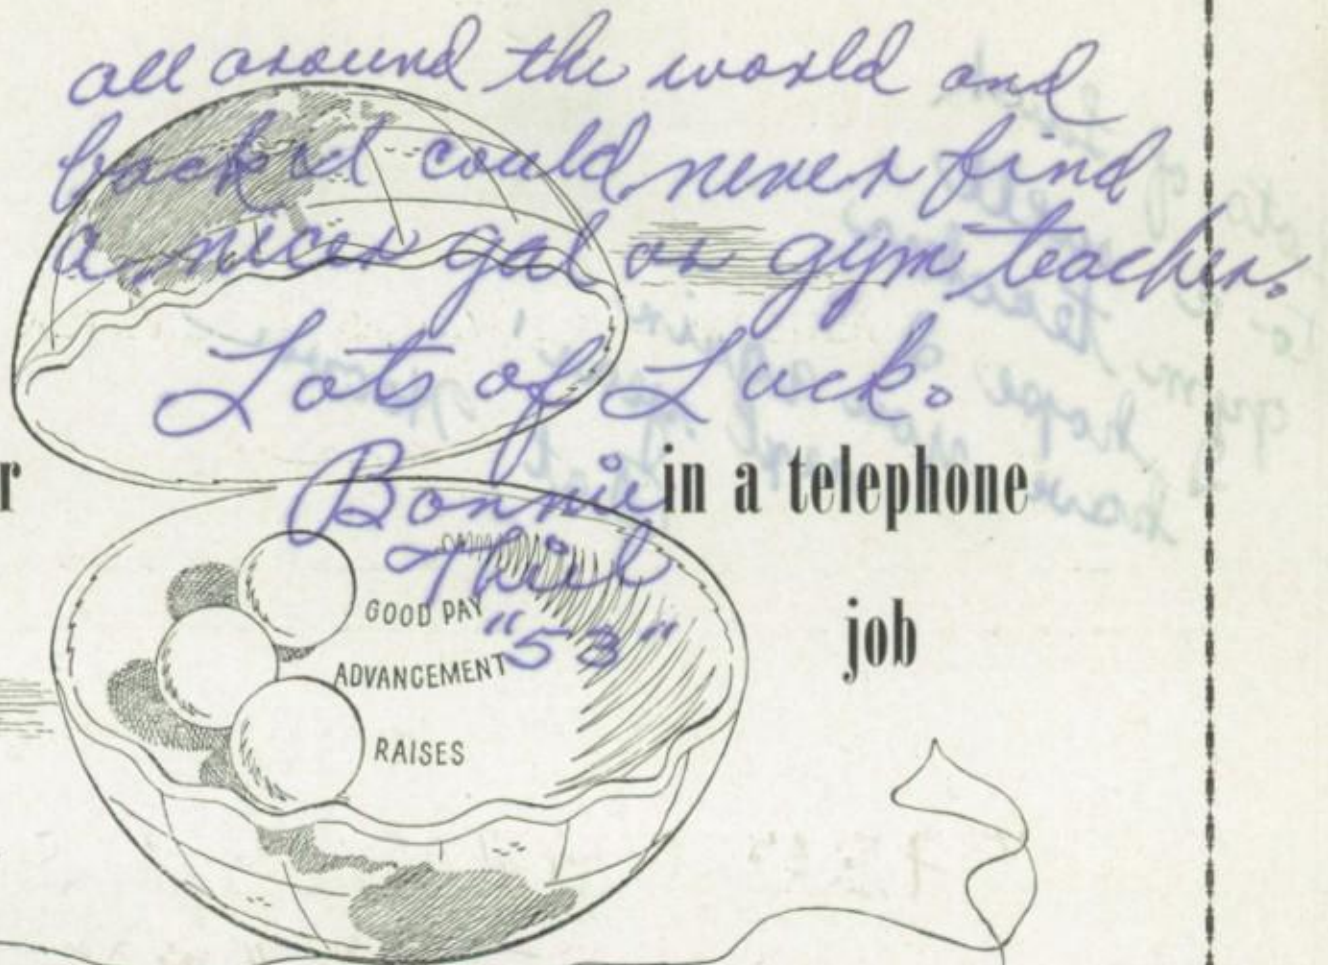 all around the world and
back I could never find
a nicer gal or gym teacher.
Lots of Luck.
Bonnie
Thiel
"53"
r
in a telephone
job
GOOD PAY
ADVANCEMENT
RAISES